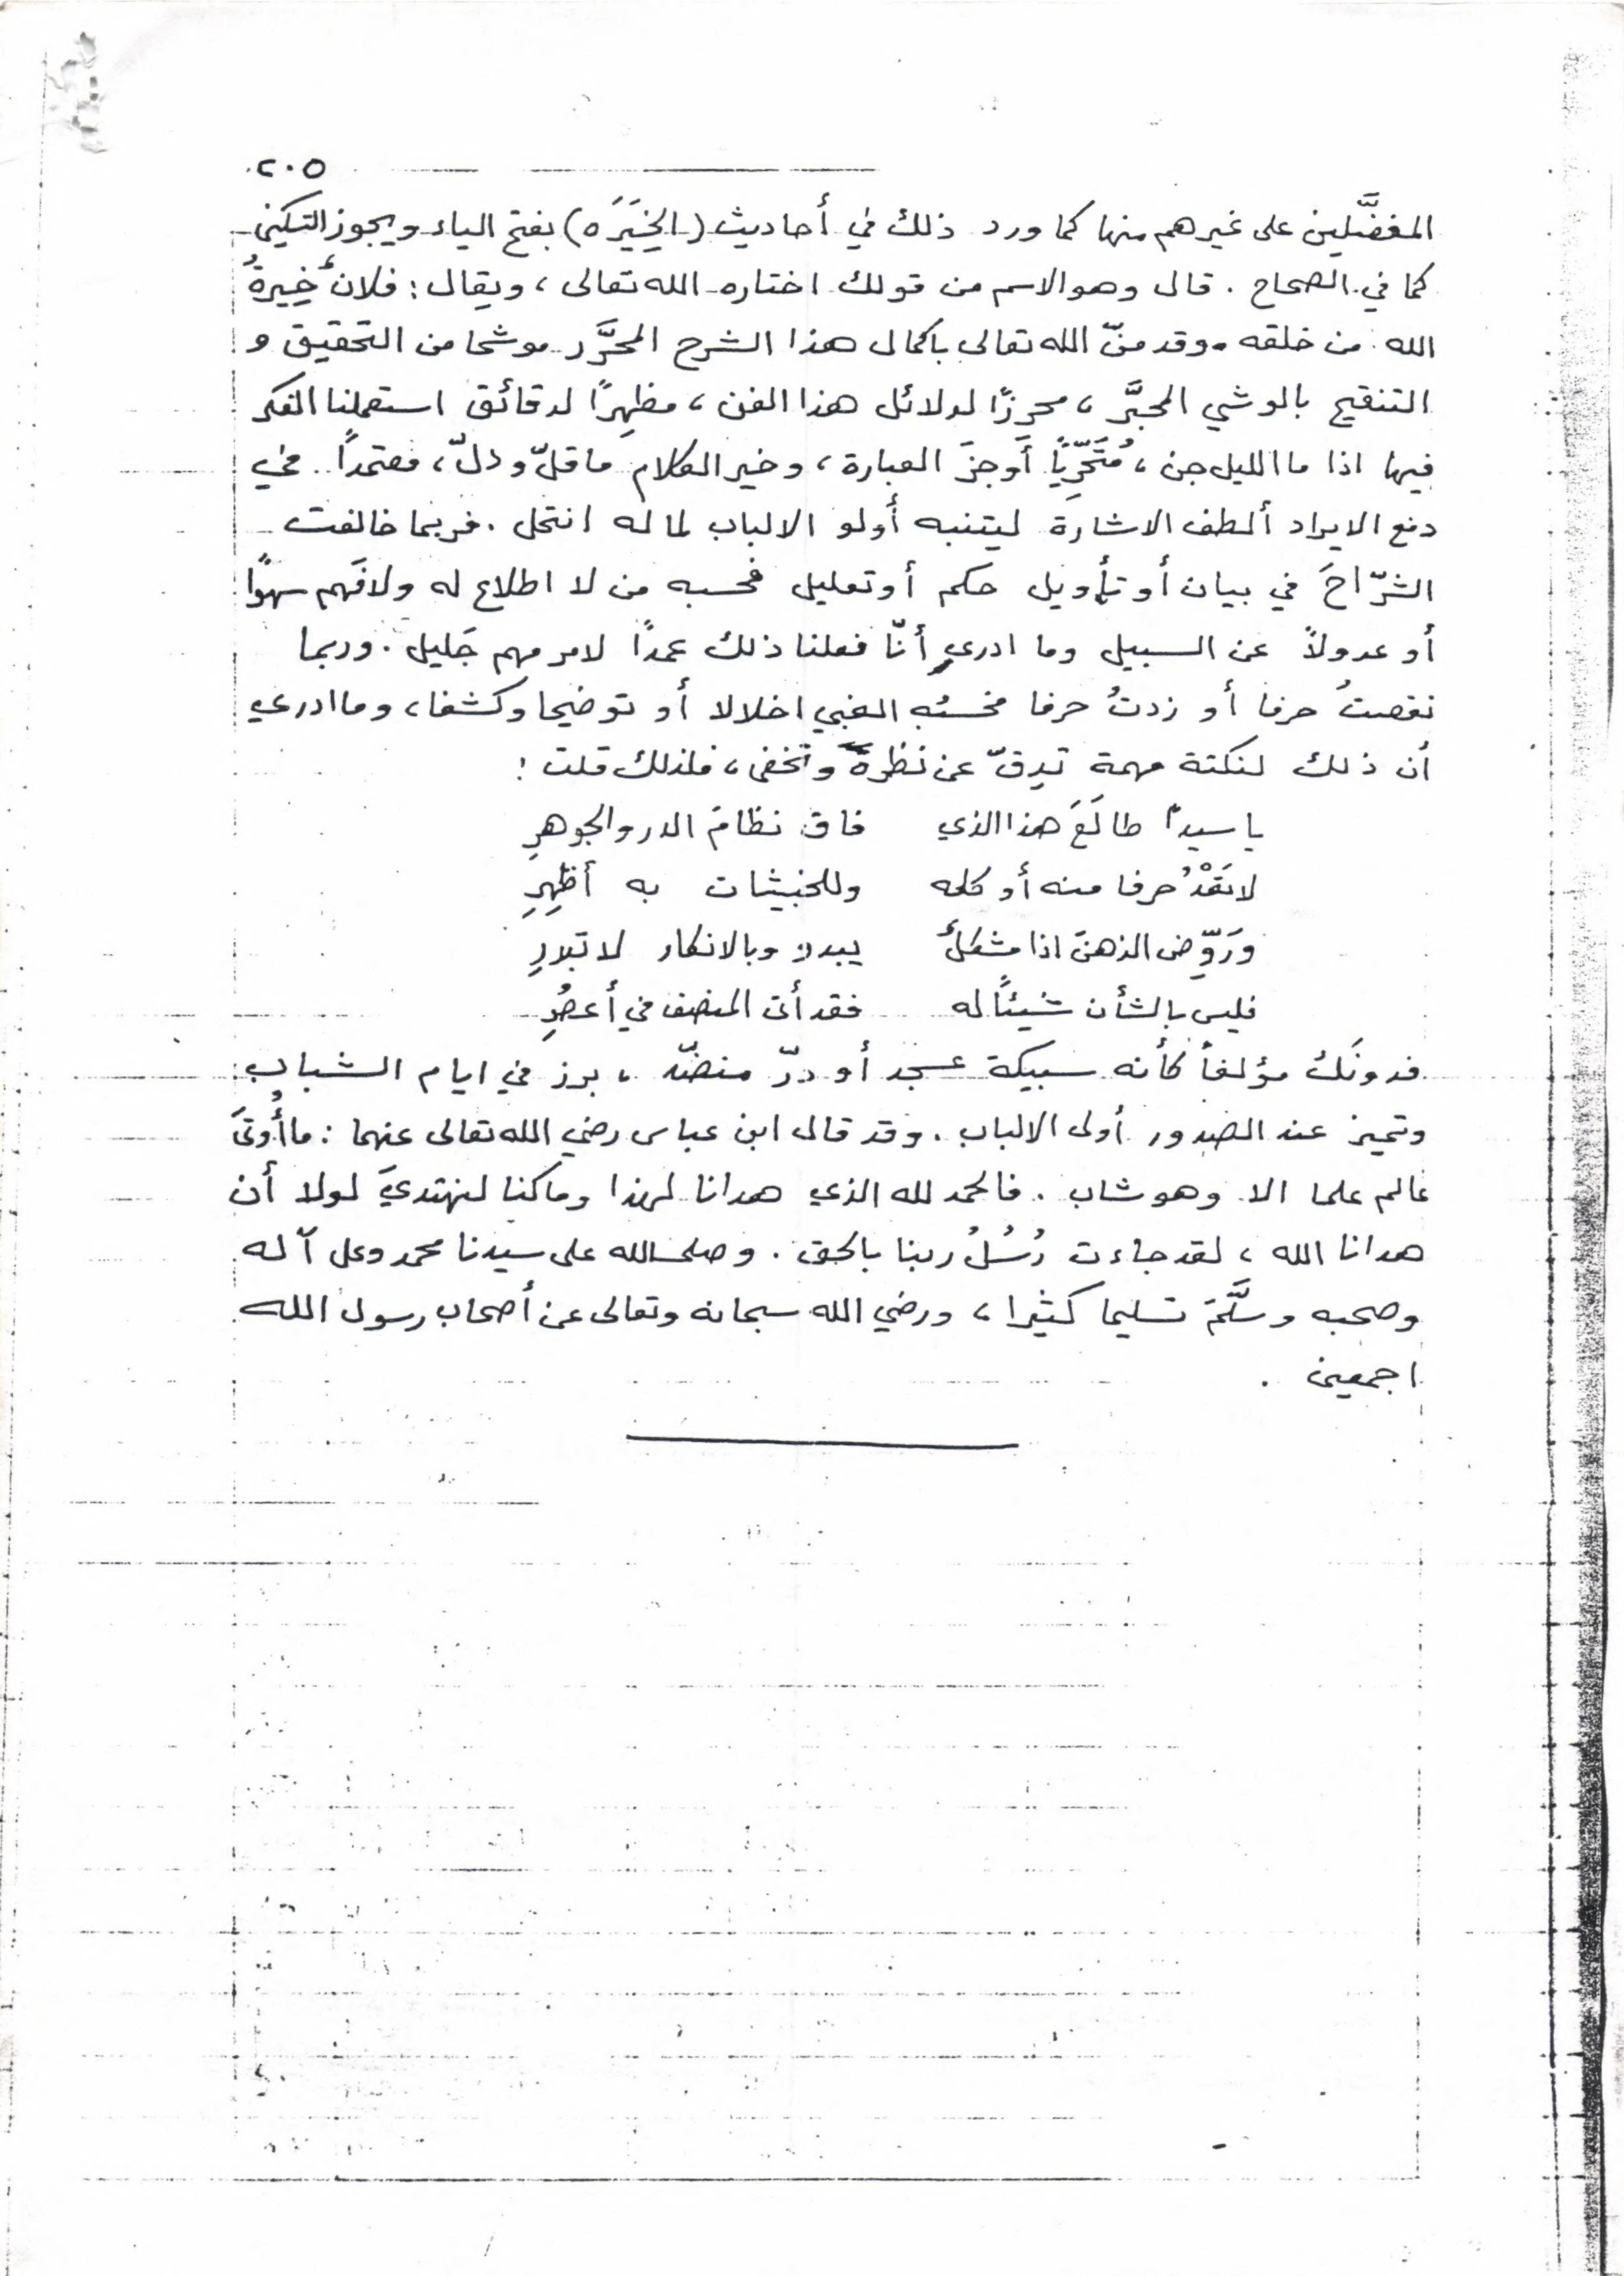 ٢٠٥
المفضَّلين على غيرهم منها كما ورد ذلك في أحاديث (الخِيَرَه) بفتح الياء ويجوز التسكين
كما في الصحاح . قال وهو الاسم من قولك اختاره الله تعالى ، ويقال : فلانٌ خِيرةُ
الله من خلقه . وقد منّ الله تعالى باكمال هذا الشرح المحرَّر موشحا من التحقيق و
التنقيح بالوشي المحبَّر ، محرزًا لدلائل هذا الفن ، مظهِرًا لدقائق استعملنا الفكر
فيها اذا ما الليل جن ، مُتَحَرِّيًا أَوجزَ العبارة ، وخير الكلام ما قلّ ودلّ ، معتمدًا في
دفع الايراد ألطف الاشارة ليتنبه أولو الالباب لما له انتحل . فربما خالفت
الشرّاحَ في بيان أو تأويل حكم أو تعليل فحسبه من لا اطلاع له ولا فَهم سهوًا
أو عدولاً عن السبيل وما ادري أنّا فعلنا ذلك عمدًا لامر مهم جَليل . وربما
نقصتُ حرفا أو زدتُ حرفا فحسبُه الغبي اخلالا أو توضيحا وكشفا ، وما ادري
أن ذلك لنكتة مهمة تدِقّ عن نظرة وتخفى ، فلذلك قلت :
يا سيداً طالَعَ هذا الذي فاق نظامَ الدر والجوهرِ
لا تَعْدُ حرفا منه أو كلمه وللخبيئات به أظهِرِ
ورَوِّض الذهنَ اذا مشكلٌ يبدو وبالانكار لا تبدرِ
فليس بالشأن شيئاً له فقد أتى المنصف في أعصُرِ
فدونَك مؤلفاً كأنه سبيكة عسجد أو درّ منضّد ، برز في ايام الشباب
وتميز عند الصدور أولى الالباب . وقد قال ابن عباس رضي الله تعالى عنهما : ما أُوتىَ
عالم علما الا وهو شاب . فالحمد لله الذي هدانا لهذا وما كنا لنهتديَ لولا أن
هدانا الله ، لقد جاءت رُسُلُ ربنا بالحق . وصلى الله على سيدنا محمد وعلى آله
وصحبه وسلَّمَ تسليما كثيرا ، ورضي الله سبحانه وتعالى عن أصحاب رسول الله
اجمعين .